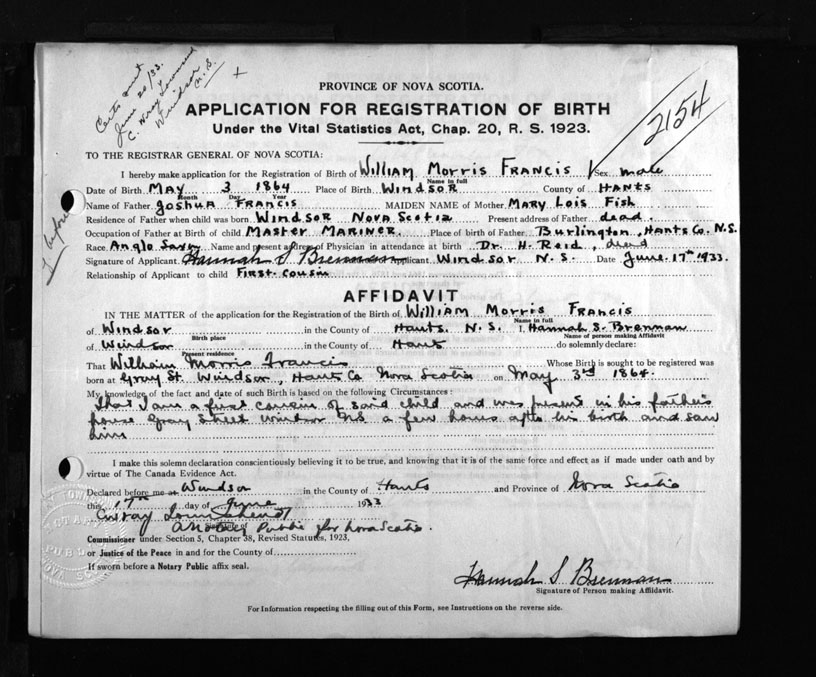 Certs sent
June 20/33.
C. Wray Townsend
Windsor
N.S.
2154
PROVINCE OF NOVA SCOTIA.
APPLICATION FOR REGISTRATION OF BIRTH
Under the Vital Statistics Act, Chap. 20, R. S. 1923.
TO THE REGISTRAR GENERAL OF NOVA SCOTIA:
I hereby make application for the Registration of Birth of William Morris Francis Sex male
Name in full
Date of Birth May 3 1864 Place of Birth Windsor County of Hants
Month Day Year
Name of Father Joshua Francis MAIDEN NAME of Mother Mary Lois Fish
Residence of Father when child was born Windsor Nova Scotia Present address of Father dead.
Occupation of Father at Birth of child Master Mariner. Place of birth of Father Burlington, Hants Co. N.S.
Race Anglo Saxon Name and present address of Physician in attendance at birth Dr. H. Reid, dead
Signature of Applicant Hannah S Brennan Applicant Windsor N.S. Date June. 17th 1933.
Relationship of Applicant to child First cousin
AFFIDAVIT
IN THE MATTER of the application for the Registration of the Birth of William Morris Francis
Name in full
of Windsor in the County of Hants. N.S. I, Hannah S. Brennan
Birth place Name of person making Affidavit
of Windsor in the County of Hants do solemnly declare:
Present residence
That William Morris Francis Whose Birth is sought to be registered was
born at Gray St. Windsor, Hants Co Nova Scotia on May 3rd 1864.
My knowledge of the fact and date of such Birth is based on the following Circumstances:
That I am a first cousin of said child and was present in his father's
house Gray Street Windsor N.S. a few hours after his birth and saw
him
I make this solemn declaration conscientiously believing it to be true, and knowing that it is of the same force and effect as if made under oath and by
virtue of The Canada Evidence Act.
Declared before me at Windsor in the County of Hants and Province of Nova Scotia
this 17th day of June 1933
A Notary Public for Nova Scotia.
Commissioner under Section 5, Chapter 38, Revised Statutes, 1923,
or Justice of the Peace in and for the County of
If sworn before a Notary Public affix seal.
Hannah S Brennan
Signature of Person making Affidavit.
For Information respecting the filling out of this Form, see Instructions on the reverse side.